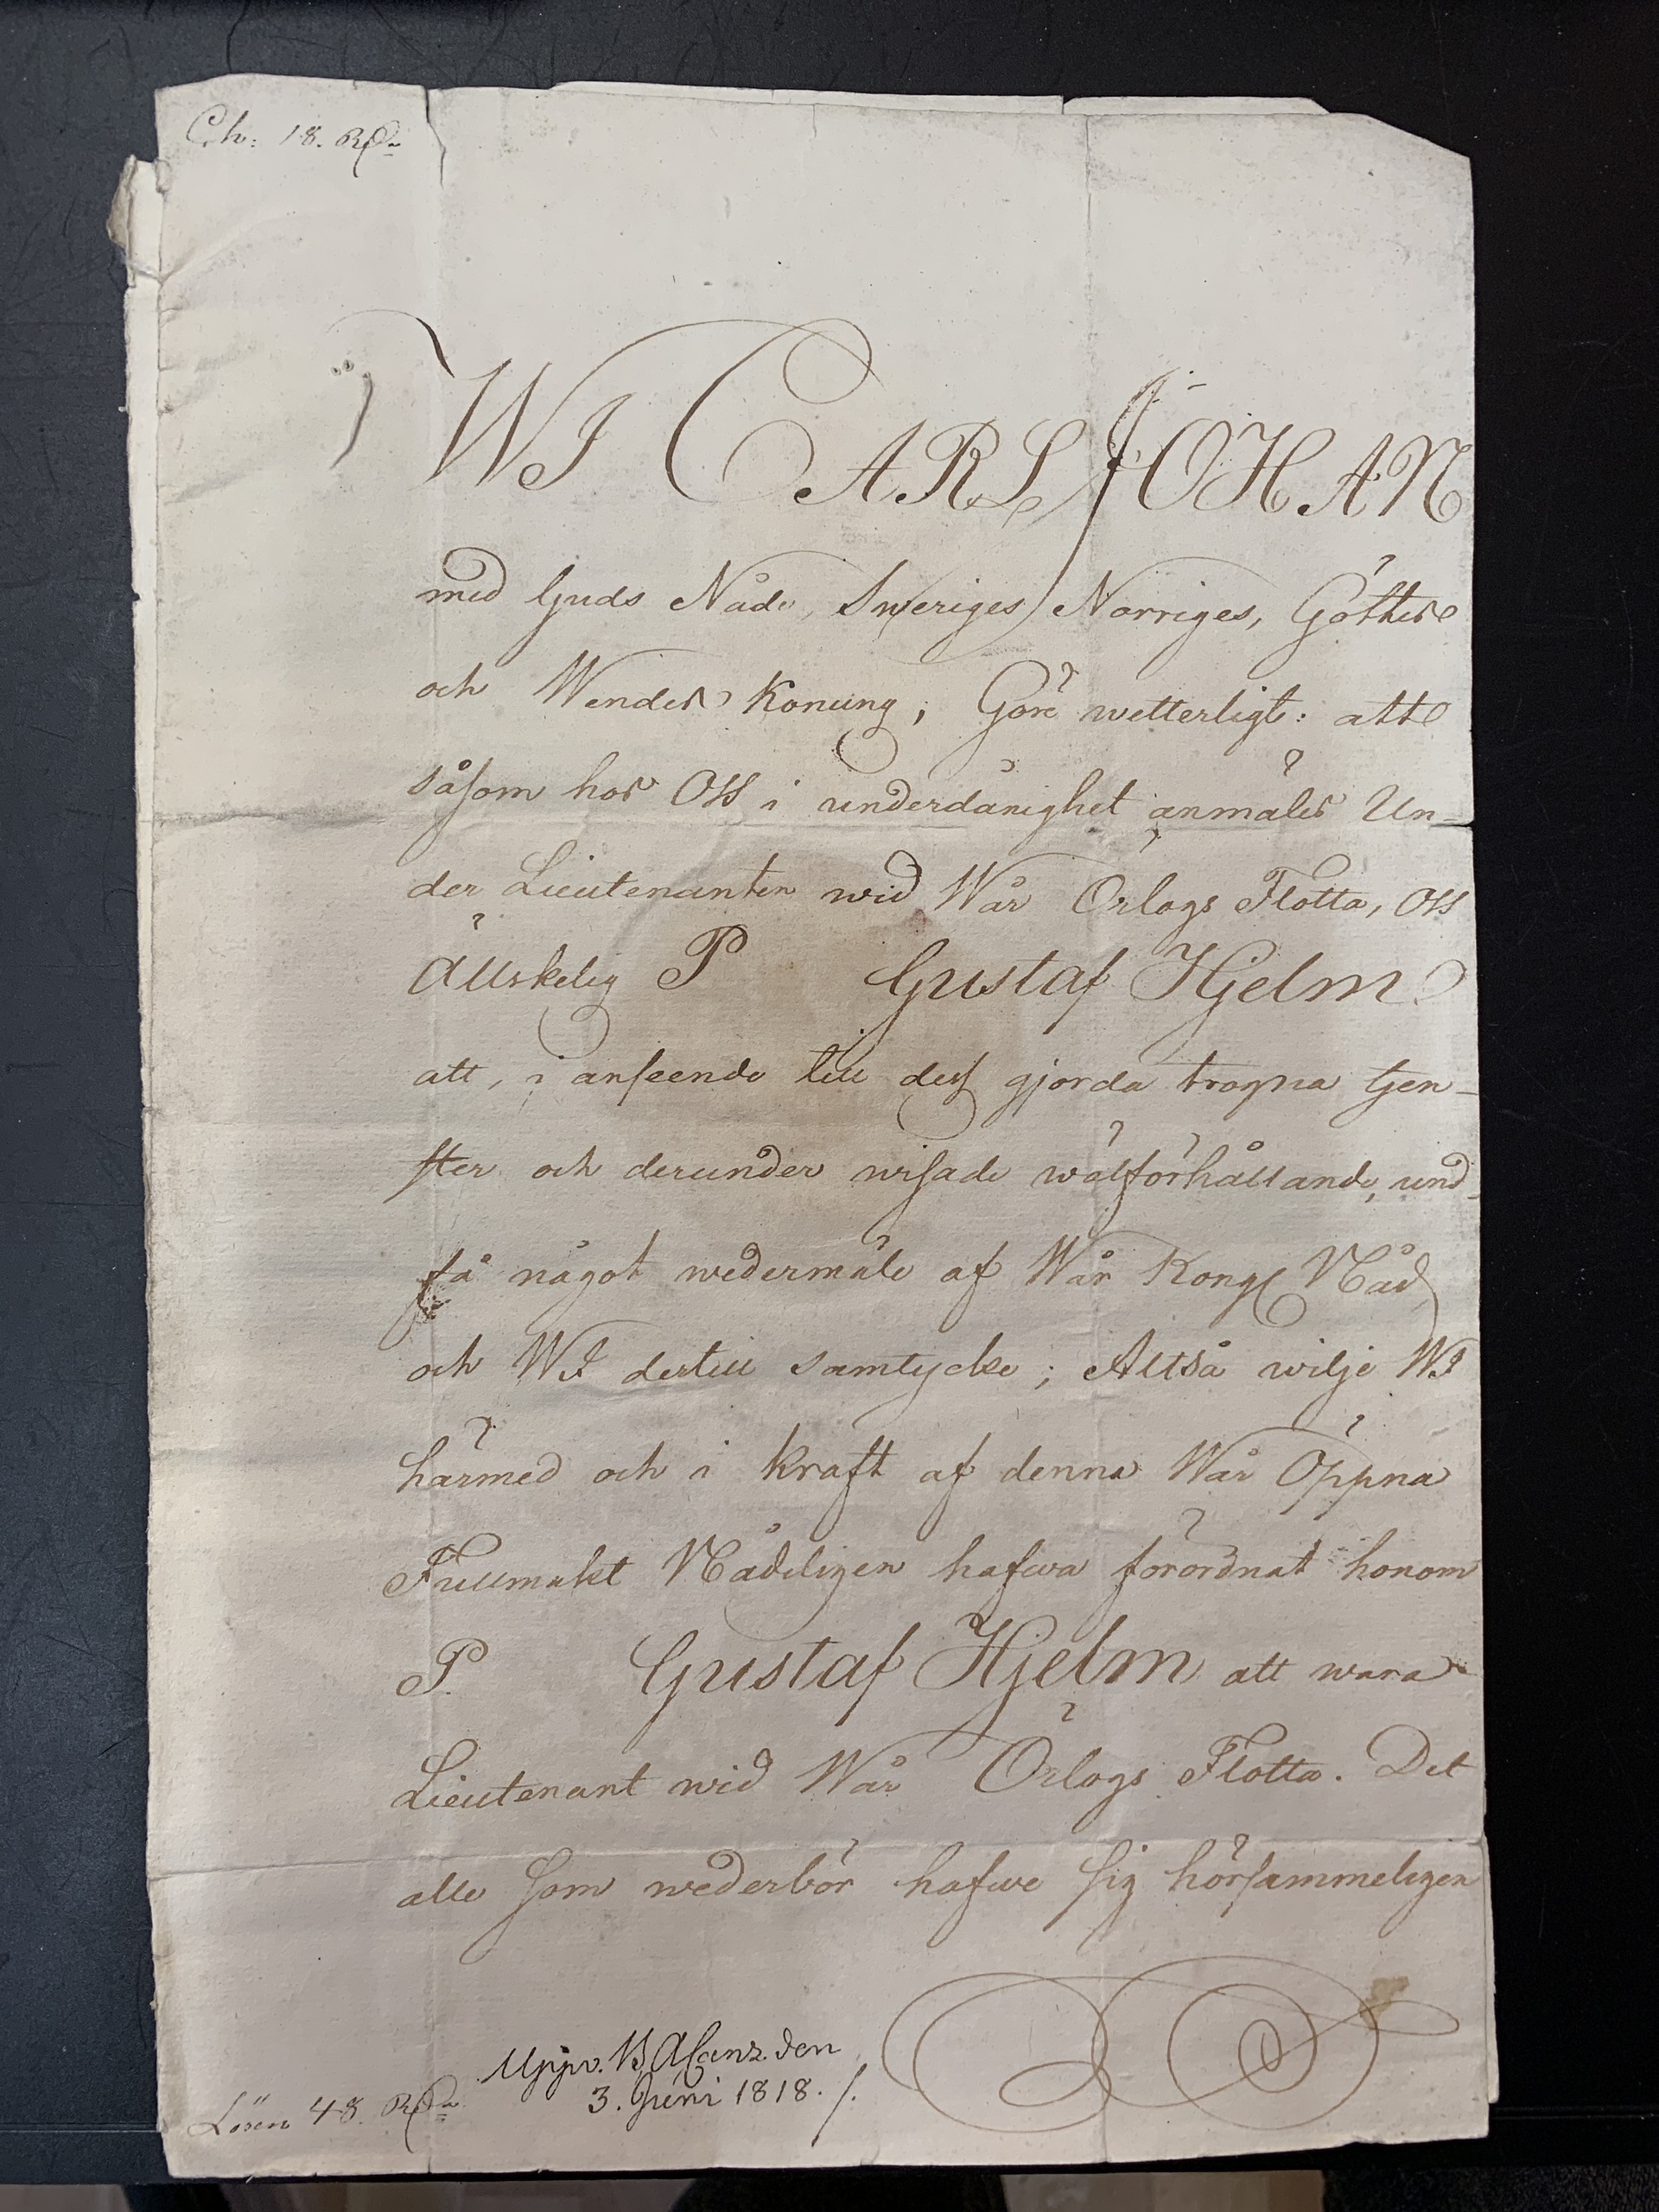 Ch: 18. RSr
WI CARL JOHAN
med Guds Nåde, Sweriges, Norriges, Göthes
och Wendes Konung; Göre wetterligt: att
såsom hos Oss i underdånighet anmäles Un-
der Lieutenanten wid Wår Örlogs Flotta, Oss
Älskelig P Gustaf Hjelm
att, i anseende till dess gjorda trogna tjen-
ster och derunder wisade wälförhållande, und-
få något wedermäle af Wår Kongl Nåd,
och WI dertill samtycke; Altså wilje WI
härmed och i kraft af denna Wår Öppna
Fullmakt Nådeligen hafwa förordnat honom
P. Gustaf Hjelm att wara
Lieutenant wid Wår Örlogs Flotta. Det
alle som wederbör hafwe sig hörsammeligen
Uppv. den
3. Juni 1818.
Lösen 48.